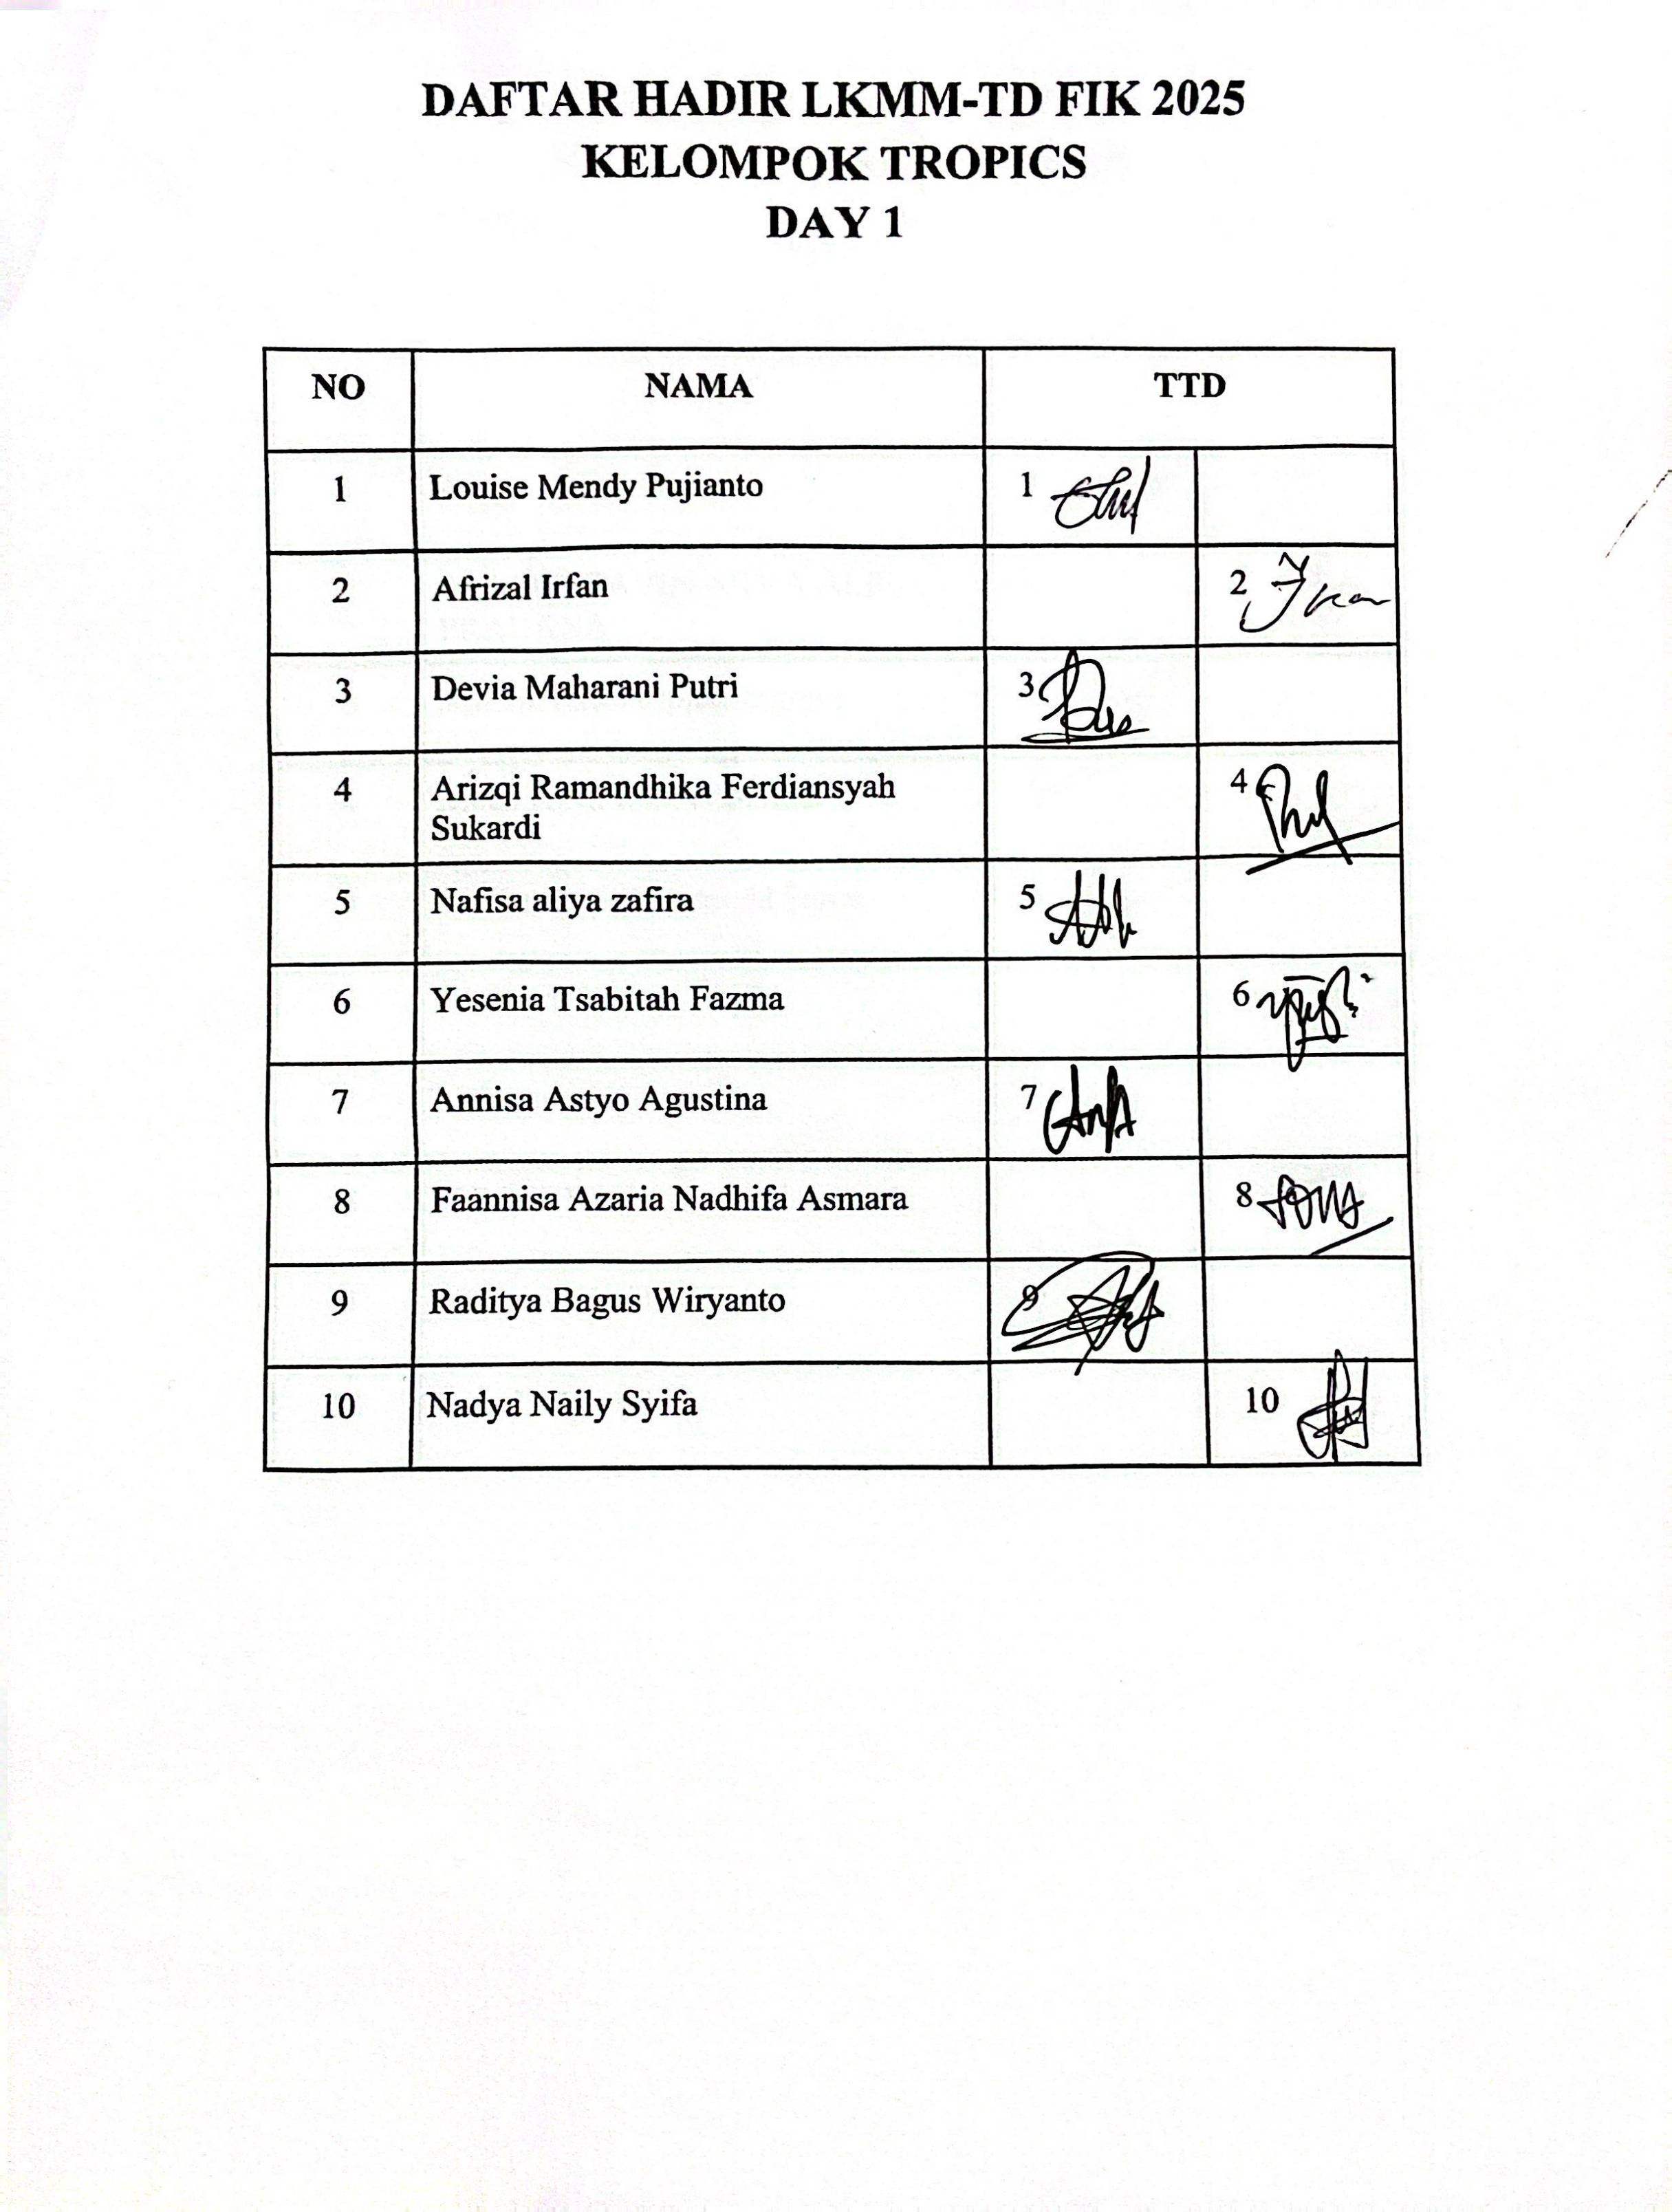 DAFTAR HADIR LKMM-TD FIK 2025
KELOMPOK TROPICS
DAY 1
NO NAMA TTD
1 Louise Mendy Pujianto 1
2 Afrizal Irfan 2
3 Devia Maharani Putri 3
4 Arizqi Ramandhika Ferdiansyah 4
Sukardi
5 Nafisa aliya zafira 5
6 Yesenia Tsabitah Fazma 6
7 Annisa Astyo Agustina 7
8 Faannisa Azaria Nadhifa Asmara 8
9 Raditya Bagus Wiryanto 9
10 Nadya Naily Syifa 10